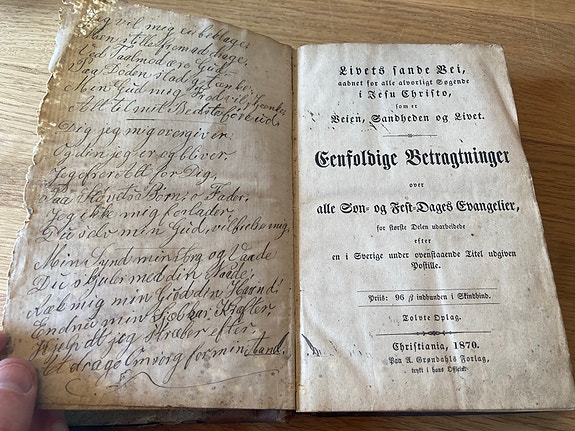 Jeg vil mig ei beklage
Men stille from ad drage,
Ved Taalmod ære Gud
Paa Døden stadig tænke,
Min Gud mig Frod vil skjenke
Alt til mit Bedste
Dig jeg mig overgiver.
Og din jeg er og bliver,
Jeg ofrer Alt for Dig,
Paa Kors Børn, o Fader,
Jeg ikke mig forlader
Du selv min Gud, vil frelse mig.
Min Synd min Sorg og Vaade
Du skjule med din Naade,
Ræk mig min Gud din Haand!
Endnu min Sjæl har Kræfter,
Hjelp at jeg stræber efter,
At drage Omsorg for min Aand.
Livets sande Vei,
aabnet for alle alvorligt Søgende
i Jesu Christo,
som er
Veien, Sandheden og Livet.
Eenfoldige Betragtninger
over
alle Søn- og Fest-Dages Evangelier,
for største Delen udarbeidede
efter
en i Sverige under ovenstaaende Titel udgiven
Postille.
Priis: 96 ß indbunden i Skindbind.
Tolvte Oplag.
Christiania, 1870.
Paa A. Grøndahls Forlag,
trykt i hans Officin.